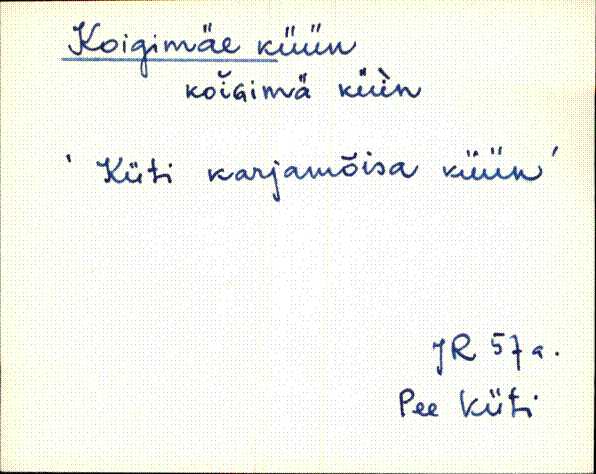 Koigimäe küün
koiGimä küǜn
' Küti karjamõisa küün'
JR 57 a.
Pee Küti